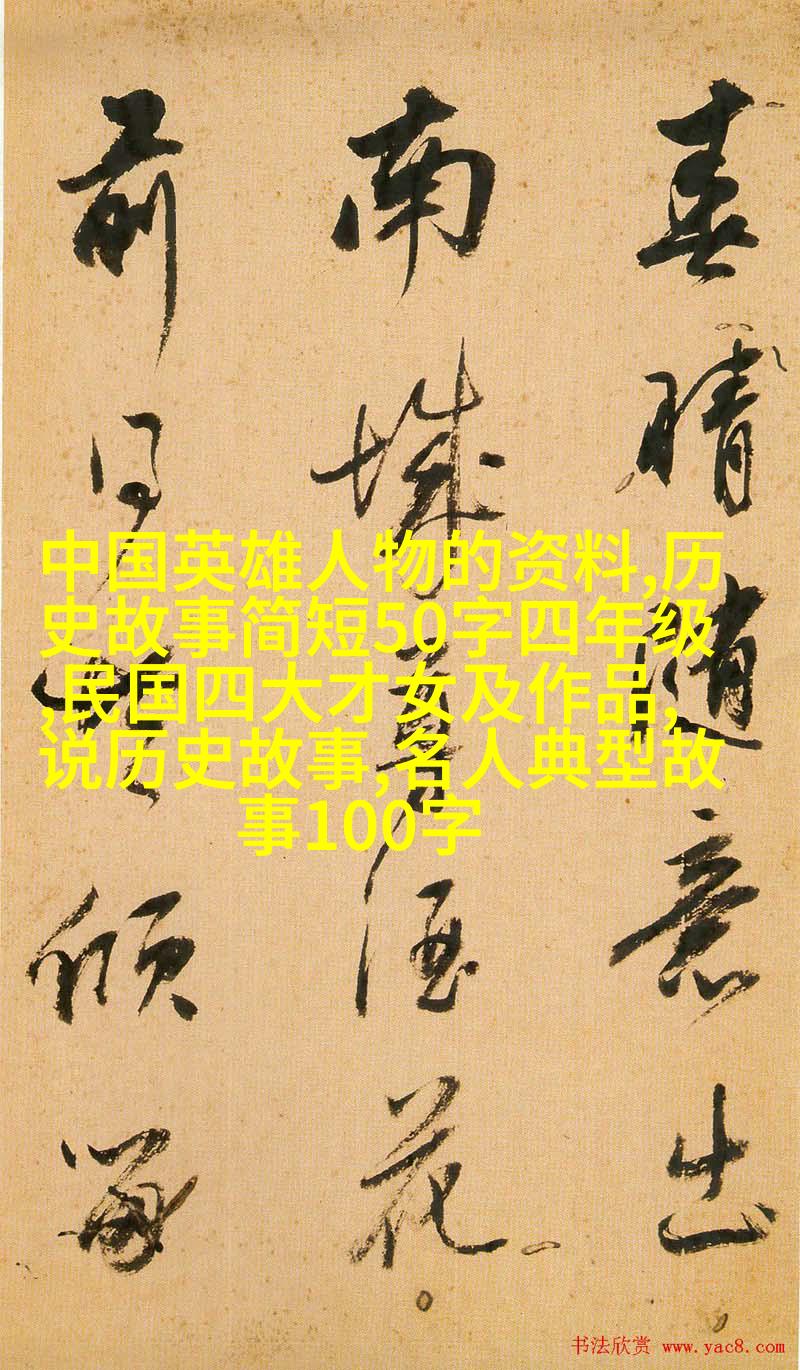 春晴隨意出
南城酒花
前
中国英雄人物的资料,历
史故事简短50字四年级
,民国四大才女及作品,
说历史故事,名人典型故
事100字
书法欣赏 www.yac8.com